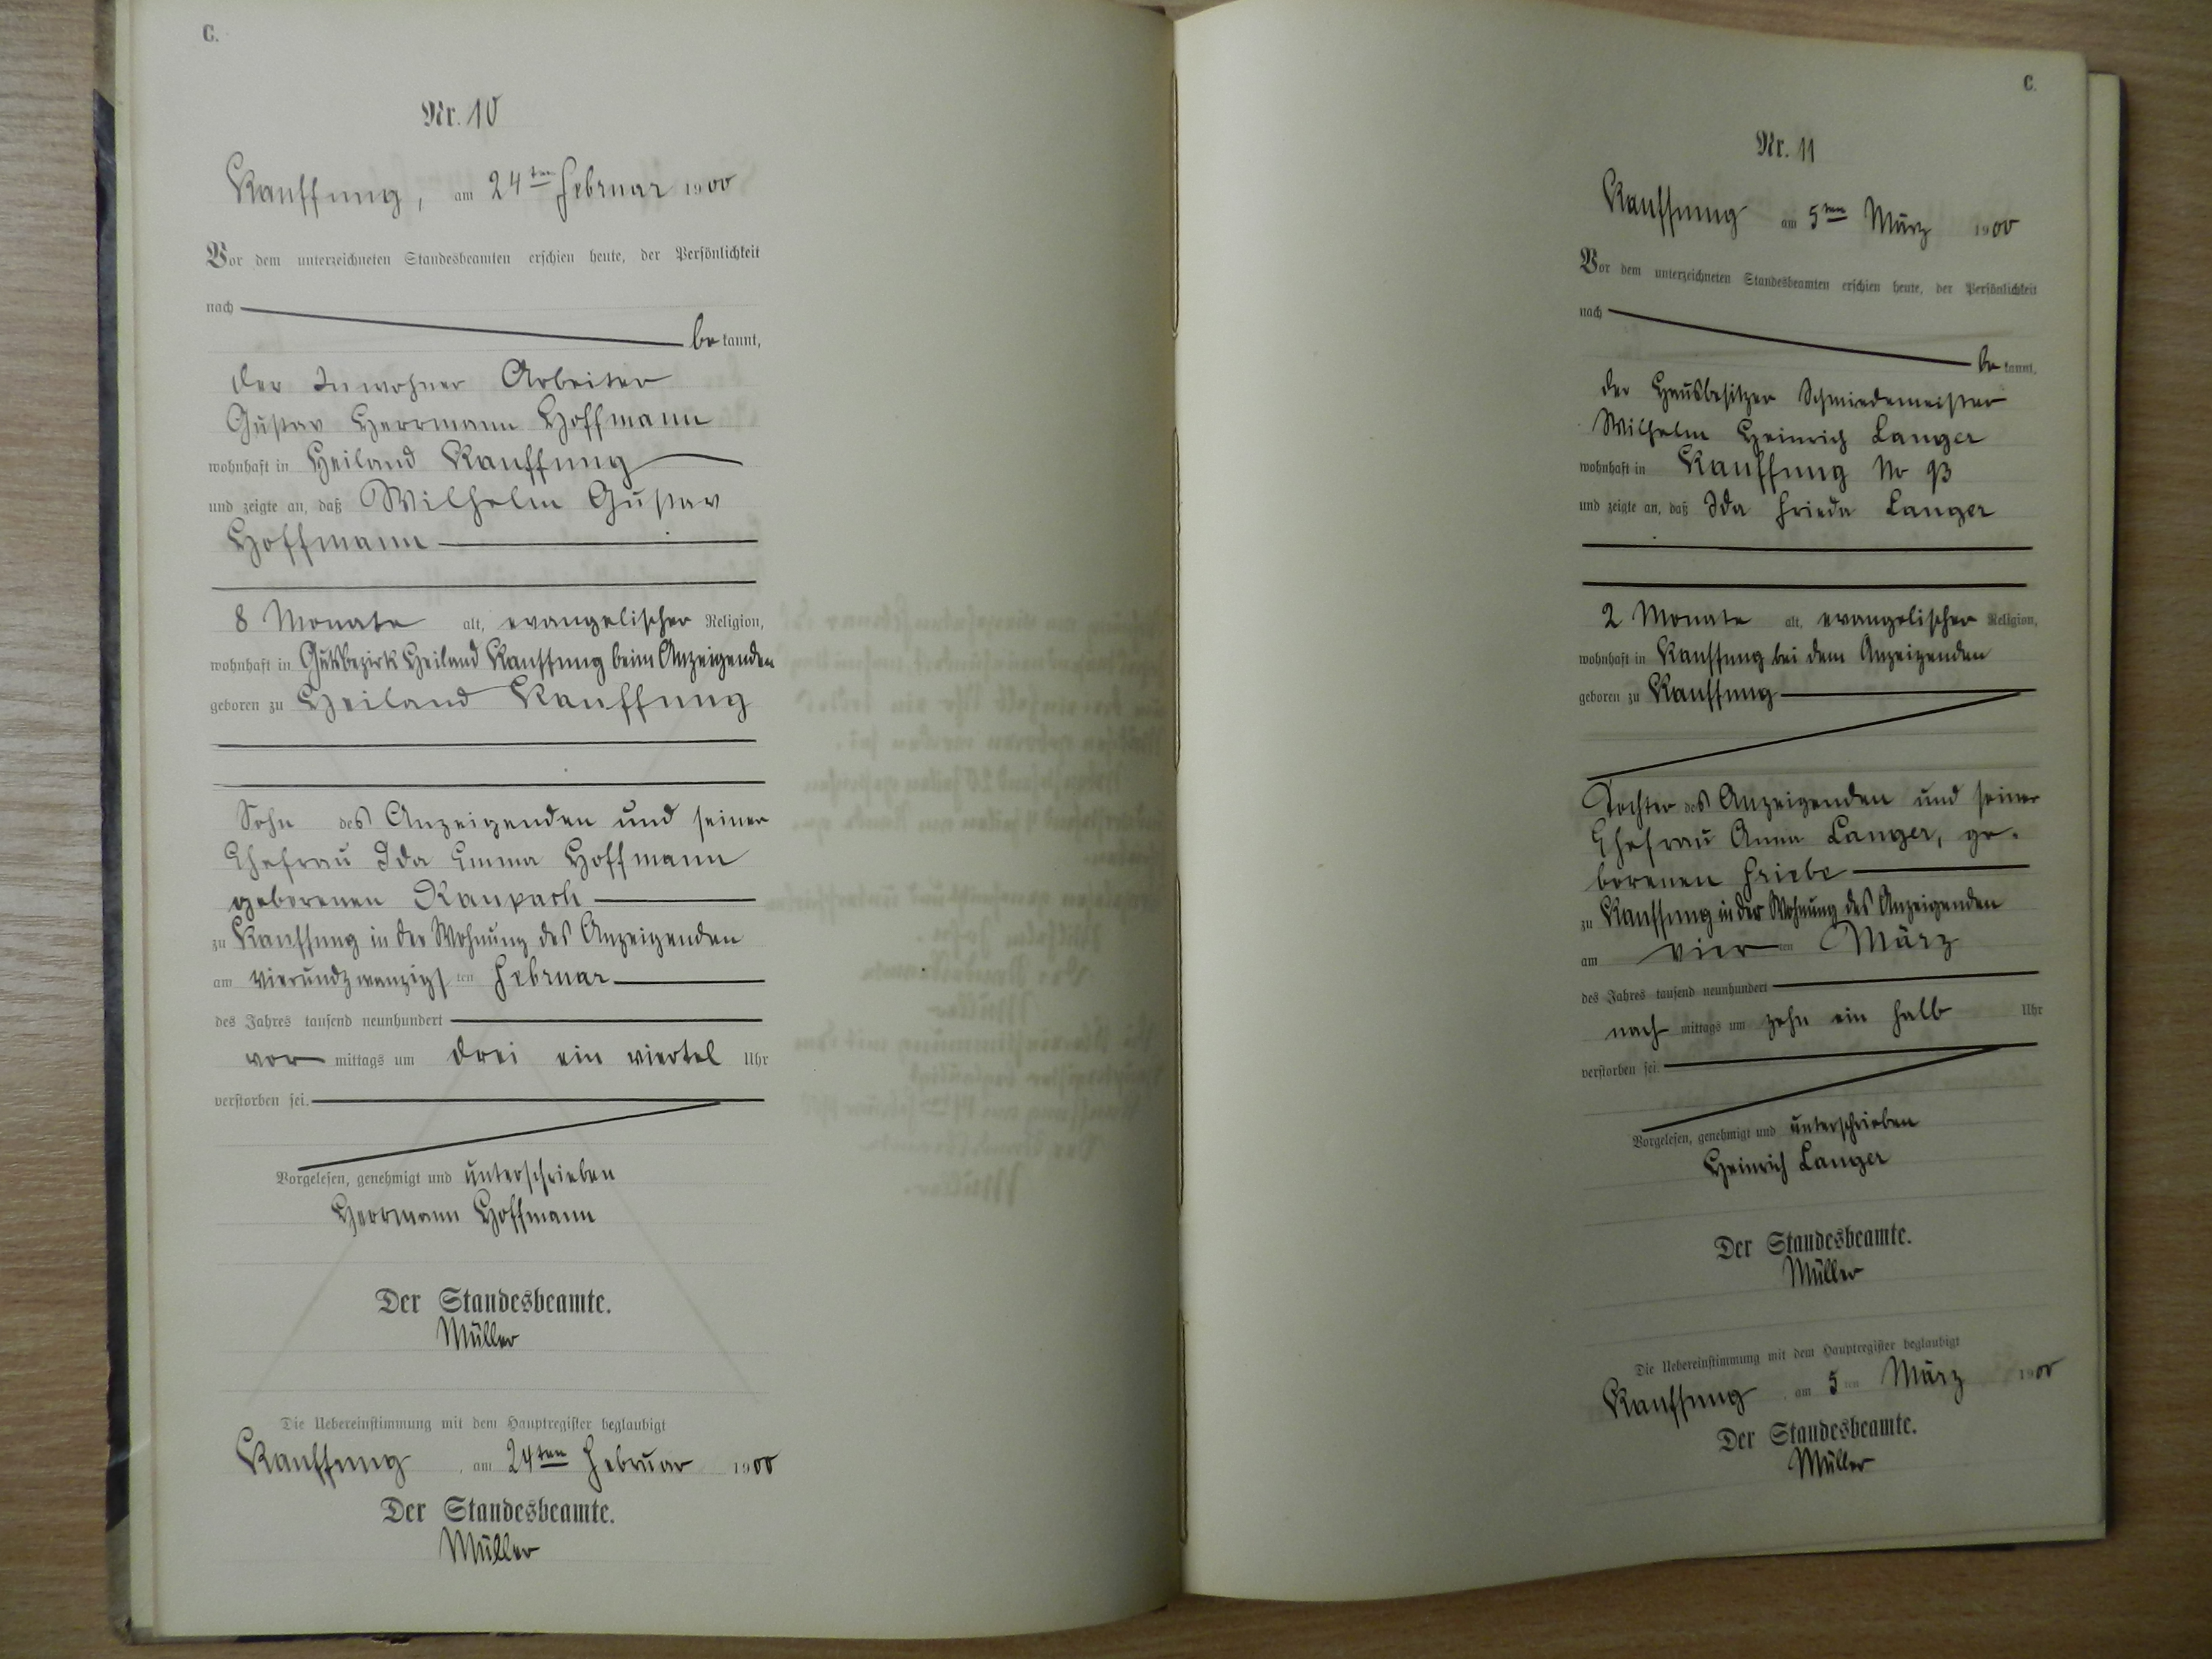 C.
Nr. 10
Kauffung, am 24ten Februar 1900
Vor dem unterzeichneten Standesbeamten erschien heute, der Persönlichkeit
nach
bekannt,
der Inwohner Arbeiter
Gustav Herrmann Hoffmann
wohnhaft in Heiland Kauffung
und zeigte an, daß Wilhelm Gustav
Hoffmann
8 Monate alt, evangelischer Religion,
wohnhaft in Gutsbezirk Heiland Kauffung beim Anzeigenden
geboren zu Heiland Kauffung
Sohn des Anzeigenden und seiner
Ehefrau Ida Emma Hoffmann
geborenen
zu Kauffung in der Wohnung des Anzeigenden
am vierundzwanzigsten Februar
des Jahres tausend neunhundert
vormittags um drei ein viertel Uhr
verstorben sei.
Vorgelesen, genehmigt und unterschrieben
Herrmann Hoffmann
Der Standesbeamte.
Müller
Die Uebereinstimmung mit dem Hauptregister beglaubigt
Kauffung, am 24ten Februar 1900
Der Standesbeamte.
Müller
C.
Nr. 11
Kauffung am 5ten März 1900
Vor dem unterzeichneten Standesbeamten erschien heute, der Persönlichkeit
nach
bekannt,
der Hausbesitzer Schmiedemeister
Wilhelm Heinrich Langer
wohnhaft in Kauffung No 93
und zeigte an, daß Ida Frieda Langer
2 Monate alt, evangelischer Religion,
wohnhaft in Kauffung bei dem Anzeigenden
geboren zu Kauffung
Tochter des Anzeigenden und seiner
Ehefrau Anna Langer, ge-
borenen Friebe
zu Kauffung in der Wohnung des Anzeigenden
am vierten März
des Jahres tausend neunhundert
nachmittags um zehn ein halb Uhr
verstorben sei.
Vorgelesen, genehmigt und unterschrieben
Heinrich Langer
Der Standesbeamte.
Müller
Die Uebereinstimmung mit dem Hauptregister beglaubigt
Kauffung, am 5ten März 1900
Der Standesbeamte.
Müller